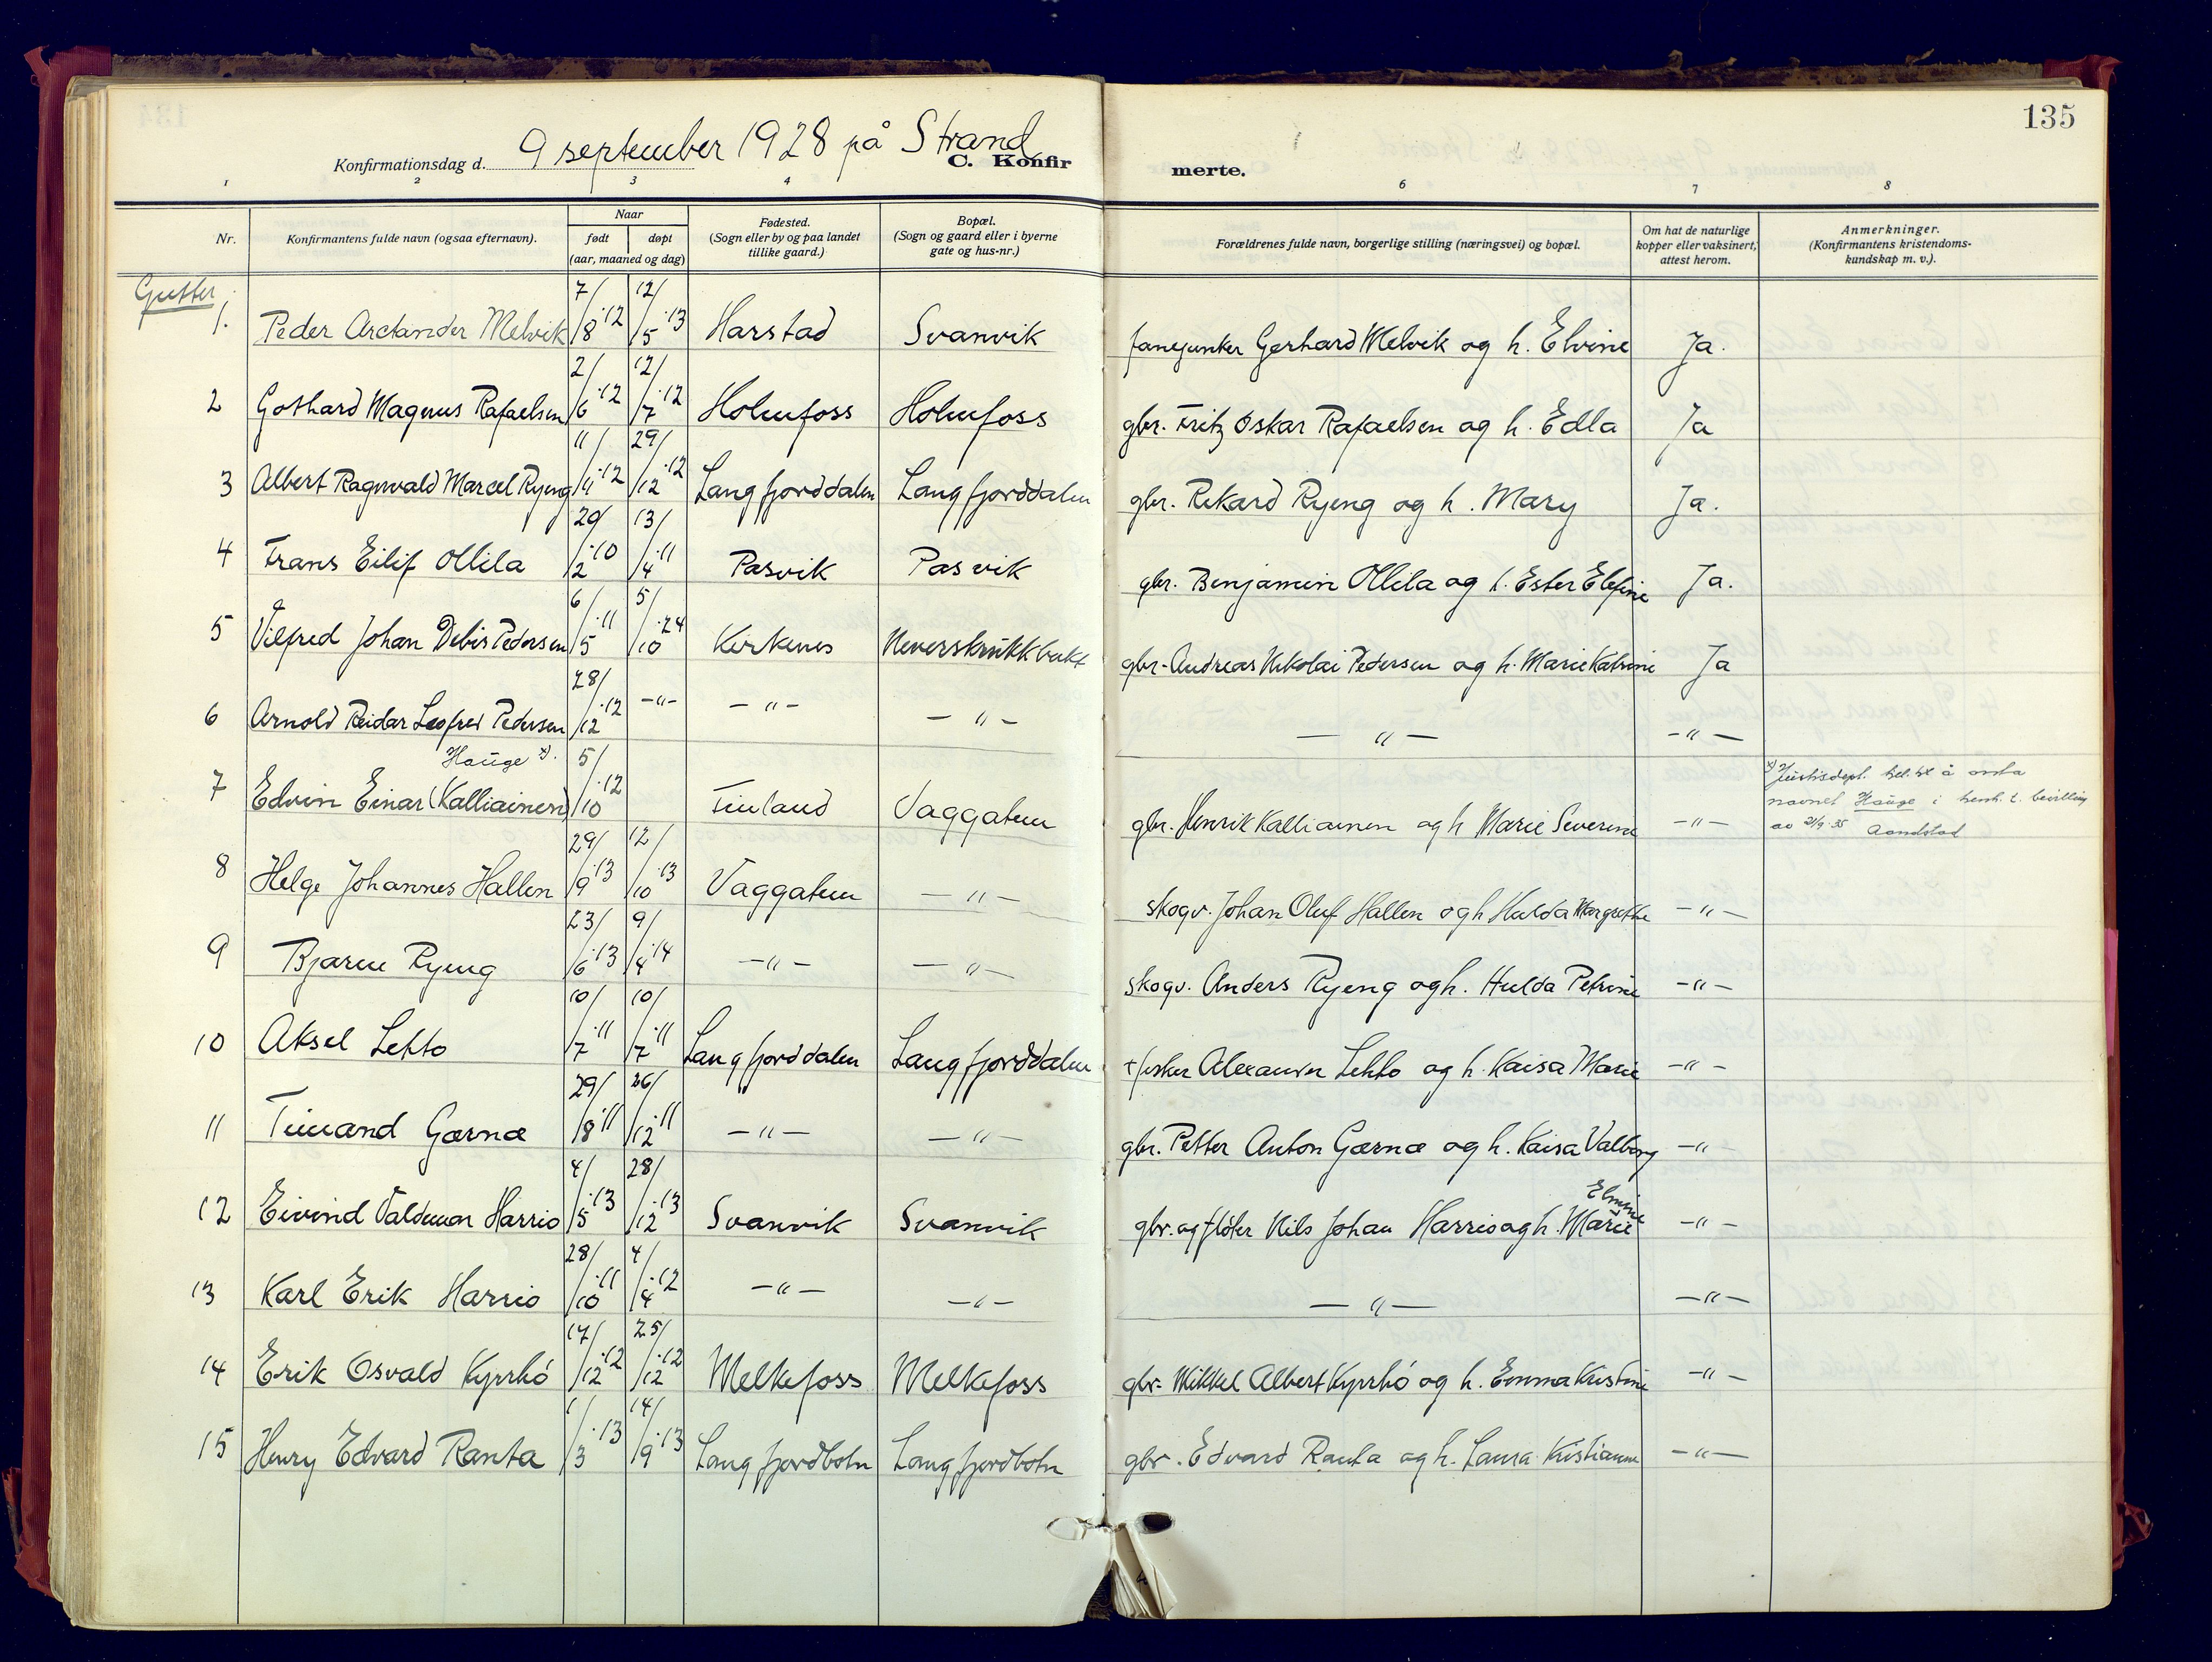 135
Konfirmationsdag d. 9 september 1928 på Strand
C. Konfirmerte.
1 2 3 4 6 7 8
Nr. Konfirmantens fulde navn (ogsaa efternavn). Naar født døpt (aar, maaned og dag) Fødested. (Sogn eller by og paa landet tillike gaard.) Bopæl. (Sogn og gaard eller i byerne gate og hus-nr.) Forældrenes fulde navn, borgerlige stilling (næringsvei) og bopæl. Om hat de naturlige kopper eller vaksinert, attest herom. Anmerkninger. (Konfirmantens kristendomskundskap m. v.).
Gutter
1. Peder Arctander Melvik 7/8 '12 12/5 '13 Harstad Svanvik fanejunker Gerhard Melvik og h. Elvine Ja.
2 Gothard Magnus Rafaelsen 2/6 '12 12/7 '12 Holmfoss Holmfoss gbr. Fritz Oskar Rafaelsen og h. Edla Ja
3 Albert Ragnvald Marcel Ryeng 11/4 '12 29/12 '12 Langfjorddalen Langfjorddalen gbr. Rikard Ryeng og h. Mary Ja.
4 Frans Eilif Ollila 29/2 '10 13/4 '11 Pasvik Pasvik gbr. Benjamin Ollila og h. Ester Elefine Ja.
5 Vilfred Johan Pedersen 6/5 '11 5/10 '24 Kirkenes Neverskrukkbukt gbr. Andreas Nikolai Pedersen og h. Marie Katrine Ja
6 Arnold Reidar Leofred Pedersen 28/12 '12 -"- -"- -"- -"- -"-
Hauge x).
7 Edvin Einar (Kalliainen) 5/10 '12 Finland Vaggatem gbr. Henrik Kalliainen og h Marie Severine -"- x) Justisdept. å navnet Hauge i henh. t. bevilling av 21/9-35
8 Helge Johannes Hallen 29/9 '13 12/10 '13 Vaggatem -"- skogv. Johan Oluf Hallen og h Hulda Margrethe -"-
9 Bjarne Ryeng 23/6 '13 9/4 '14 -"- -"- skogv. Anders Ryeng og h. Hulda Petrine -"-
10 Aksel Lehto 10/7 '11 10/7 '11 Langfjorddalen Langfjorddalen + fisker Alexander Lehto og h. Kaisa Marie -"-
11 Gærnæ 29/8 '11 26/12 '11 -"- -"- gbr. Petter Anton Gærnæ og h. Kaisa Valborg -"-
12 Eivind Valdemar Harrio 4/5 '13 28/12 '13 Svanvik Svanvik gbr. og fløter Nils Johan Harrio og h. Marie -"-
13 Karl Erik Harrio 28/10 '11 4/4 '12 -"- -"- -"- -"-
14 Erik Osvald Kyrrhö 17/12 '12 25/12 '12 Melkefoss Melkefoss gbr. Mikkel Albert Kyrrhö og h. Emma Kristine -"-
15 Henry Edvard Ranta 1/3 '13 14/9 '13 Langfjordbotn Langfjordbotn gbr. Edvard Ranta og h. Laura Kristianne -"-